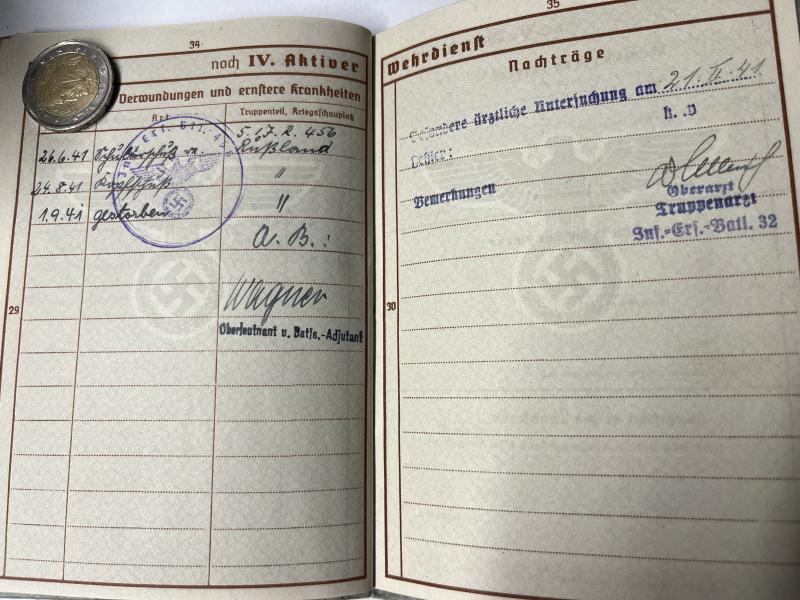 34
noch IV. Aktiver
Verwundungen und ernstere Krankheiten
Art
Truppenteil, Kriegsschauplatz
5./J.R. 456
26.6.41 Schulterschuß Rußland
24.8.41 Kopfschuß "
1.9.41 gestorben "
A. B.:
Wagner
Oberleutnant u. Batls.-Adjutant
29
35
Wehrdienst
Nachträge
Besondere ärztliche Untersuchung am 21. II. 41.
k. v
Fehler:
Bemerkungen
Oberarzt
Truppenarzt
Inf.-Ers.-Batl. 32
30